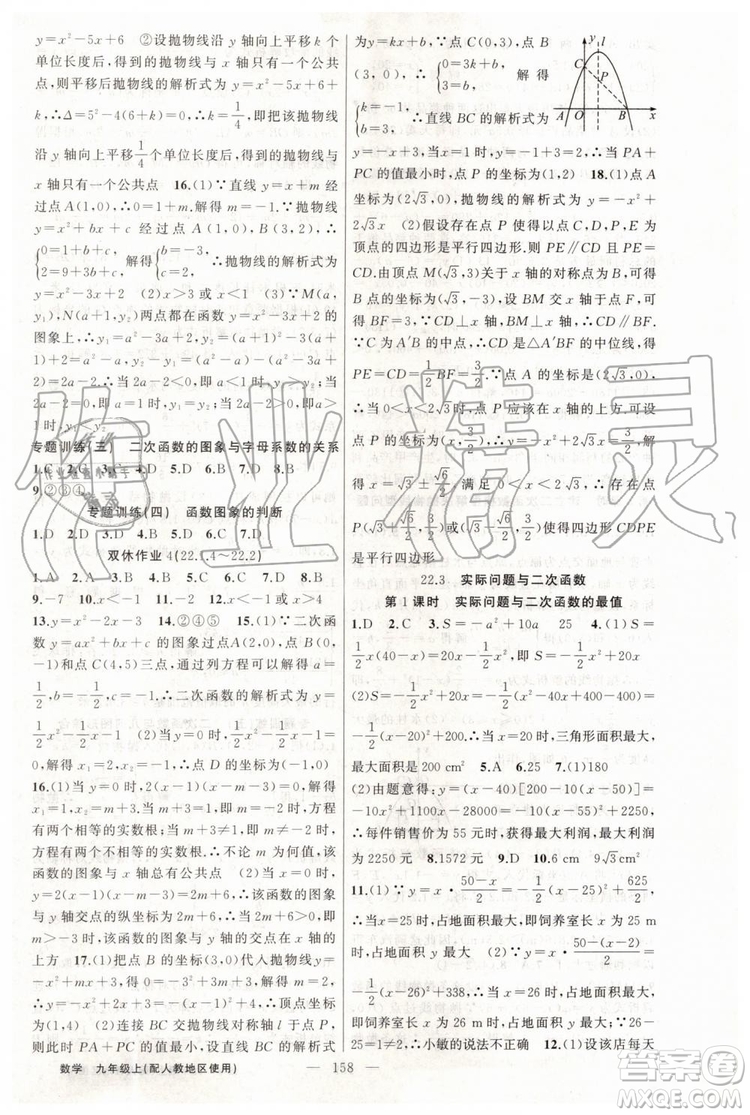 y=x²-5x+6 ②设抛物线沿 y 轴向上平移 k 个
单位长度后,得到的抛物线与 x 轴只有一个公共
点,则平移后抛物线的解析式为 y=x²-5x+6+
k,∴Δ=5²-4(6+k)=0,∴k=1/4,即把该抛物线
沿 y 轴向上平移1/4个单位长度后,得到的抛物线与
x 轴只有一个公共点 16.(1)∵直线 y=x+m
经过点 A(1,0),∴0=1+m,解得 m=-1.∵抛物线
y=x²+bx+c 经过点 A(1,0),B(3,2),∴
{0=1+b+c, 2=9+3b+c,解得{b=-3, c=2,∴抛物线的解析式为
y=x²-3x+2 (2)x>3 或 x<1 (3)∵M(a,
y₁),N(a+1,y₂)两点都在函数 y=x²-3x+2 的
图象上,∴y₁-y₂=a²-3a+2-(a+1)²+3(a+
1)-2=2-2a.∴当 2a-2<0,即 a<1 时,y₁>y₂;当
2a-2=0,即 a=1 时,y₁=y₂;当 2a-2>0,即 a>1
时,y₁<y₂
专题训练(三) 二次函数的图象与字母系数的关系
1.C 2.C 3.D 4.D 5.D 6.B 7.B 8.>
9.②③④
专题训练(四) 函数图象的判断
1.D 2.A 3.D 4.C 5.D 6.D 7.B
双休作业 4(22.1.4~22.2)
1.A 2.D 3.A 4.D 5.B 6.D 7.D 8.D
9.-7 10.k<4 11.0 12.x<-1 或 x>4
13.y=x²-2x 14.②④⑤ 15.(1)∵二次函
数 y=ax²+bx+c 的图象过 A(2,0),B(0,-1)
和点 C(4,5)三点,通过列方程组可解得 a=
1/2,b=-1/2,c=-1,∴二次函数的解析式为 y=
1/2x²-1/2x-1 (2)当 y=0 时,得 1/2x²-1/2x-1=
0,解得 x₁=2,x₂=-1,∴点 D 的坐标为(-1,0)
16.(1)当 y=0 时,2(x-1)(x-m-3)=0,解得
x₁=1,x₂=m+3.当 m+3=1,即 m=-2 时,方程
有两个相等的实数根;当 m+3≠1,即 m≠-2 时,
方程有两个不相等的实数根;∴不论 m 为何值,该
函数的图象与 x 轴总有公共点 (2)当 x=0 时,
y=2(x-1)(x-m-3)=2m+6,∴该函数的图象
与 y 轴交点的纵坐标为 2m+6,∴当 2m+6>0,即
m>-3 时,该函数的图象与 y 轴的交点在 x 轴的
上方 17.(1)把点 B 的坐标(3,0)代入抛物线
y=-x²+mx+3 得,0=-3²+3m+3,解得 m=
2,∴y=-x²+2x+3=-(x-1)²+4,∴顶点坐标
为(1,4) (2)连接 BC 交抛物线对称轴 l 于点 P,
则此时 PA+PC 的值最小,设直线 BC 的解析式
为 y=kx+b,∵点 C(0,3),点 B
(3,0),∴{0=3k+b, 3=b, 解得
{k=-1, b=3, ∴直线 BC 的解析式为
y=-x+3,当 x=1 时,y=-1+3=2,∴当 PA+
PC 的值最小时,点 P 的坐标为(1,2) 18.(1)∵抛
物线过点 A(2√3,0),抛物线的解析式为 y=-x²+
2√3x (2)假设存在点 P 使得以点 C,D,P,E 为
顶点的四边形是平行四边形,则 PE∥CD 且 PE=
CD.由顶点 M(√3,3)关于 x 轴的对称点为 B,可得
B 点的坐标为(√3,-3),设 BM 交 x 轴于点 F,可
得 BF=3,∵CD⊥x 轴,BM⊥x 轴,∴CD∥BF,
∵C 为 A′B 的中点,∴CD 是△A′BF 的中位线,得
PE=CD=1/2BF=3/2,∵点 A 的坐标为(2√3,0),
∴当 0<x<2√3时,点 P 应该在 x 轴的上方,可设
点 P 的坐标为(x,3/2),∴y=-x²+2√3x=3/2,解得
x=√3±√6/2,满足 0<x<2√3,∴存在点
P(√3+√6/2,3/2)或(√3-√6/2,3/2)使得四边形 CDPE
是平行四边形
22.3 实际问题与二次函数
第 1 课时 实际问题与二次函数的最值
1.D 2.C 3.S=-a²+10a 25 4.(1)S=
1/2x(40-x)=-1/2x²+20x,即 S=-1/2x²+20x
(2)S=-1/2x²+20x=-1/2(x²-40x+400-400)=
-1/2(x-20)²+200,∴当 x=20 时,菱形风筝的
最大面积是 200 cm² 5.A 6.25 7.(1)180
(2)由题意得:y=(x-40)[200-10(x-50)]=
-10x²+1100x-28000=-10(x-55)²+2250,
∴每件销售价为 55 元时,获得最大利润,最大利润
为 2250 元 8.1572 元 9.D 10.6 cm 9√3 cm²
11.(1)∵y=x·(50-x)/2=-1/2(x-25)²+625/2,
∴当 x=25 时,占地面积最大,即饲养室长 x 为 25 m
时,占地面积最大 (2)∵y=x·(50-(x-2))/2=
-1/2(x-26)²+338,∴当 x=26 时,占地面积最大,
即饲养室长 x 为 26 m 时,占地面积最大;∵26-
25=1≠2,∴小敏的说法不正确 12.(1)设该店每天
y
l
C
P
A
O
B
x
作业精灵
数学 九年级上(配人教地区使用) — 158 —
答案圈
MXQE.COM